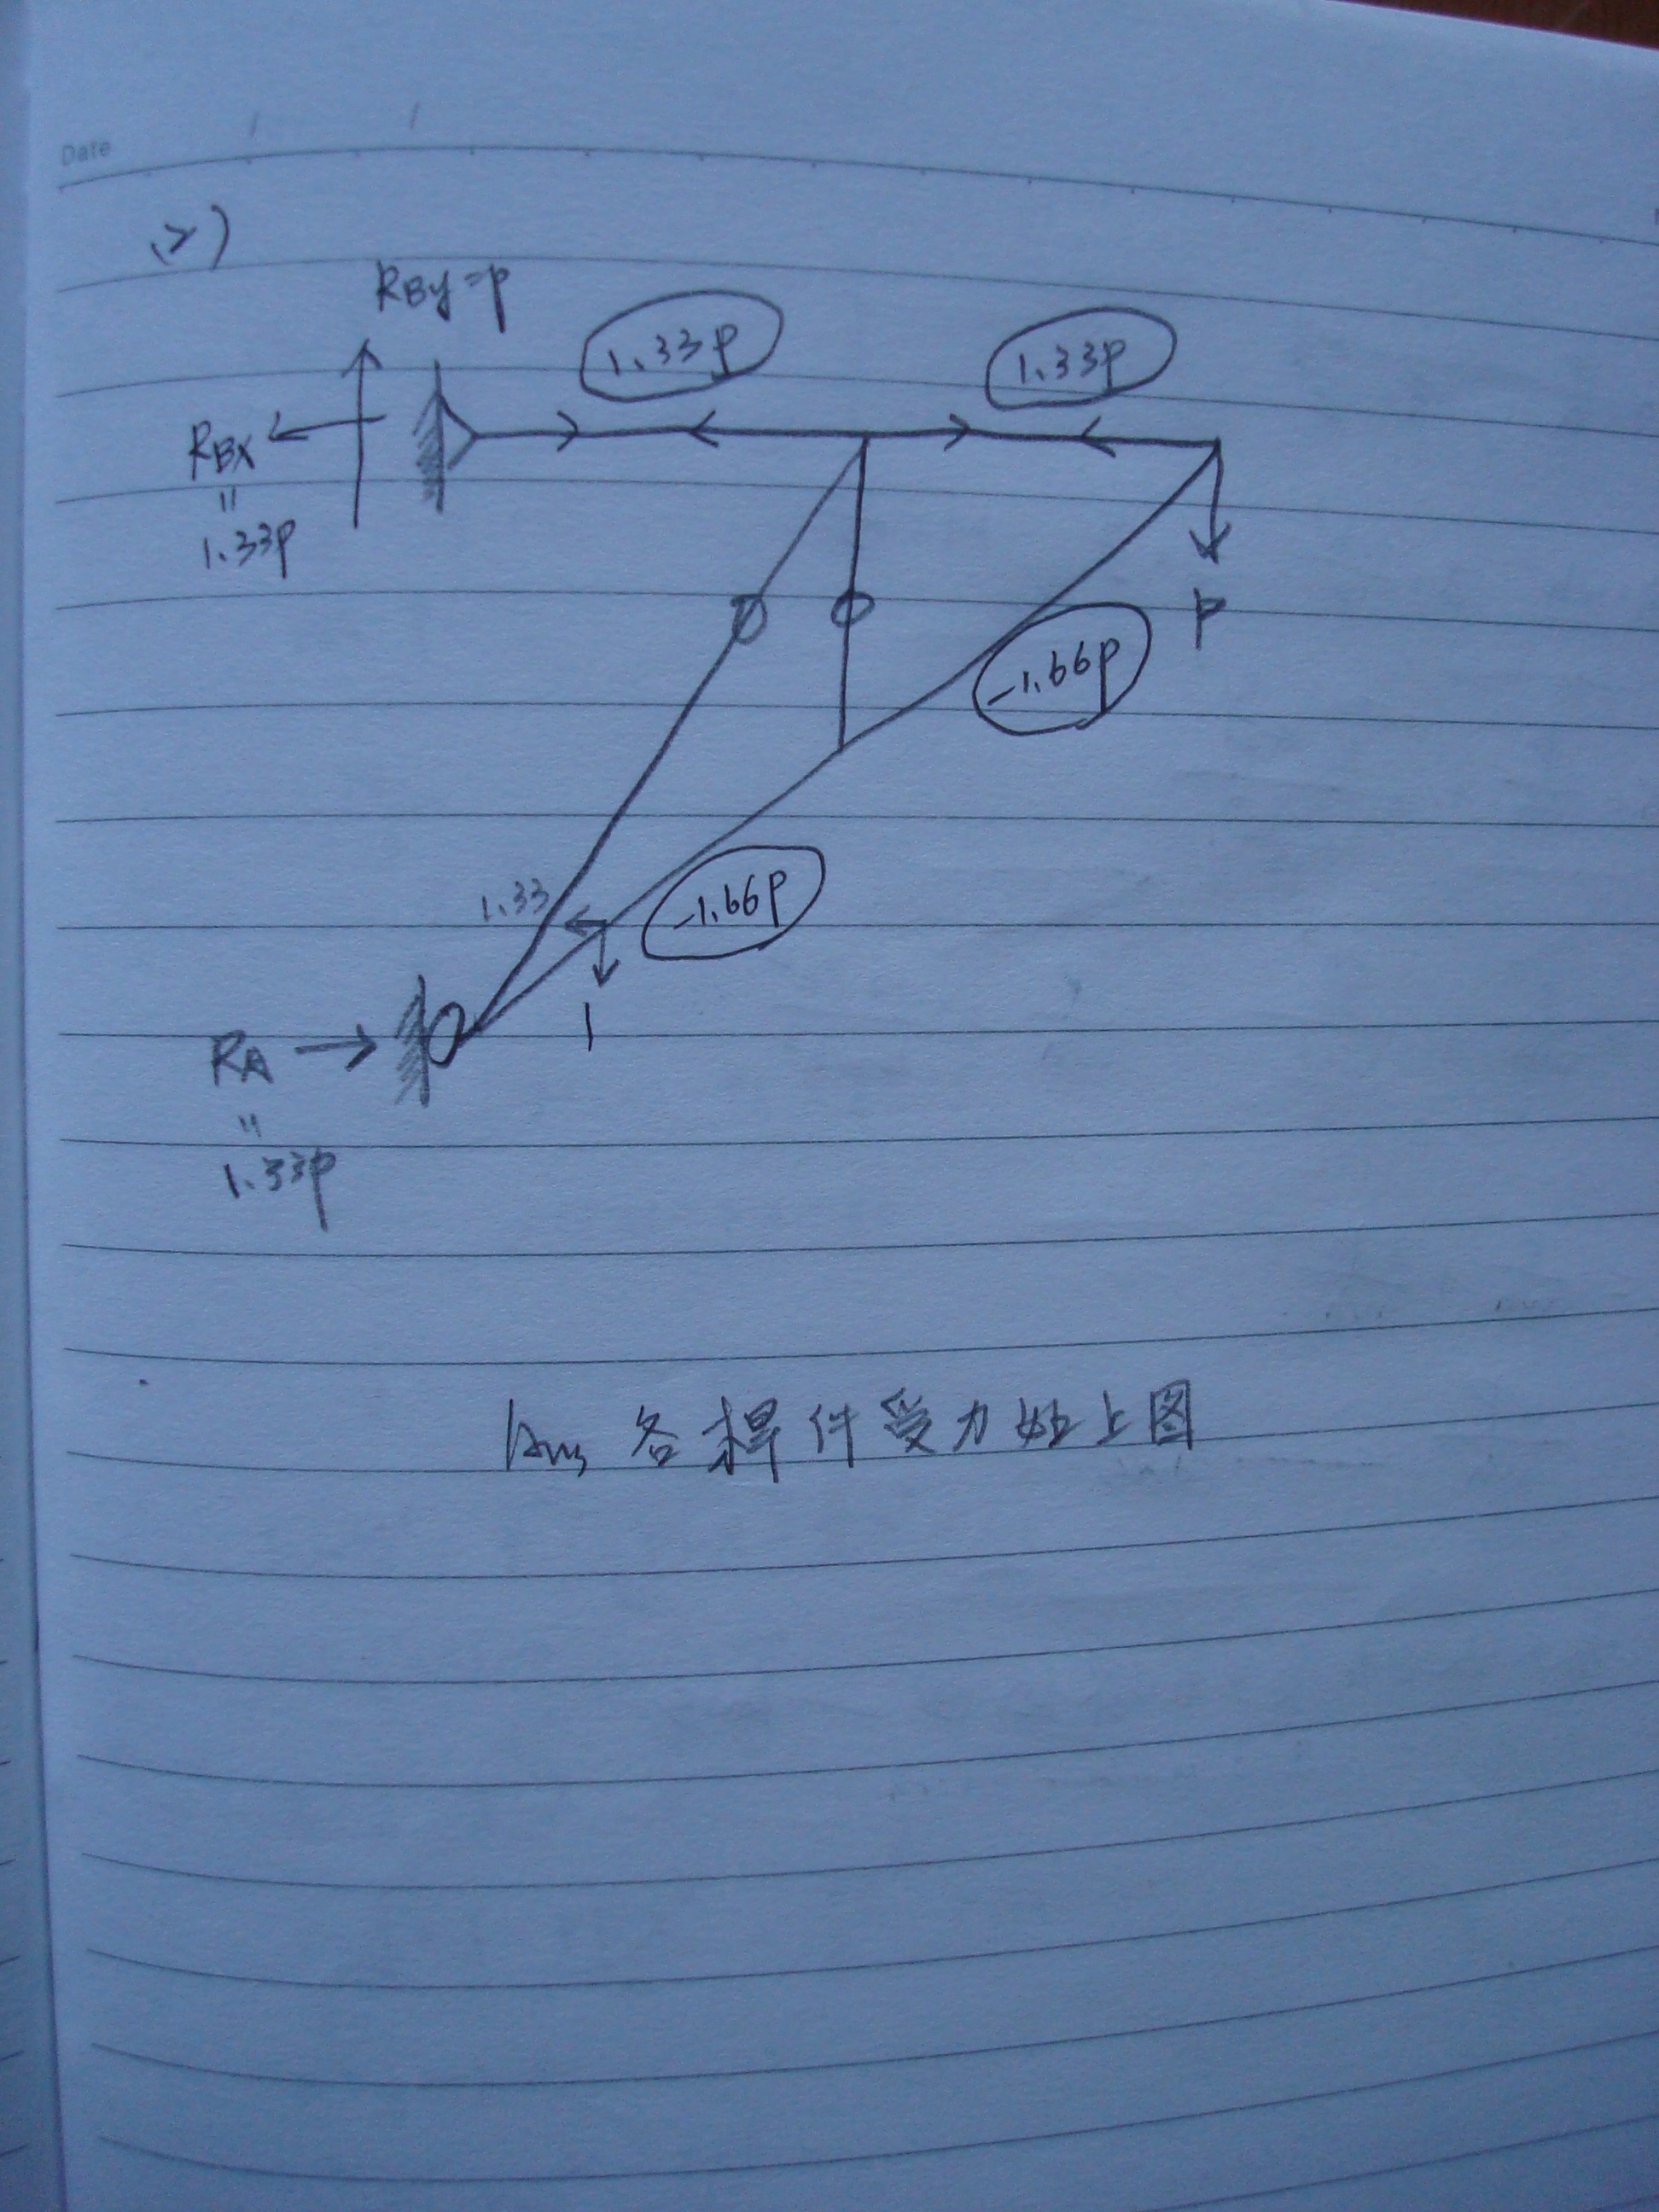 Date
(2)
RBy=P
1.33P
1.33P
RBX
"
1.33P
P
-1.66P
0
0
1.33
-1.66P
1
RA
"
1.33P
Ans 各桿件受力如上图